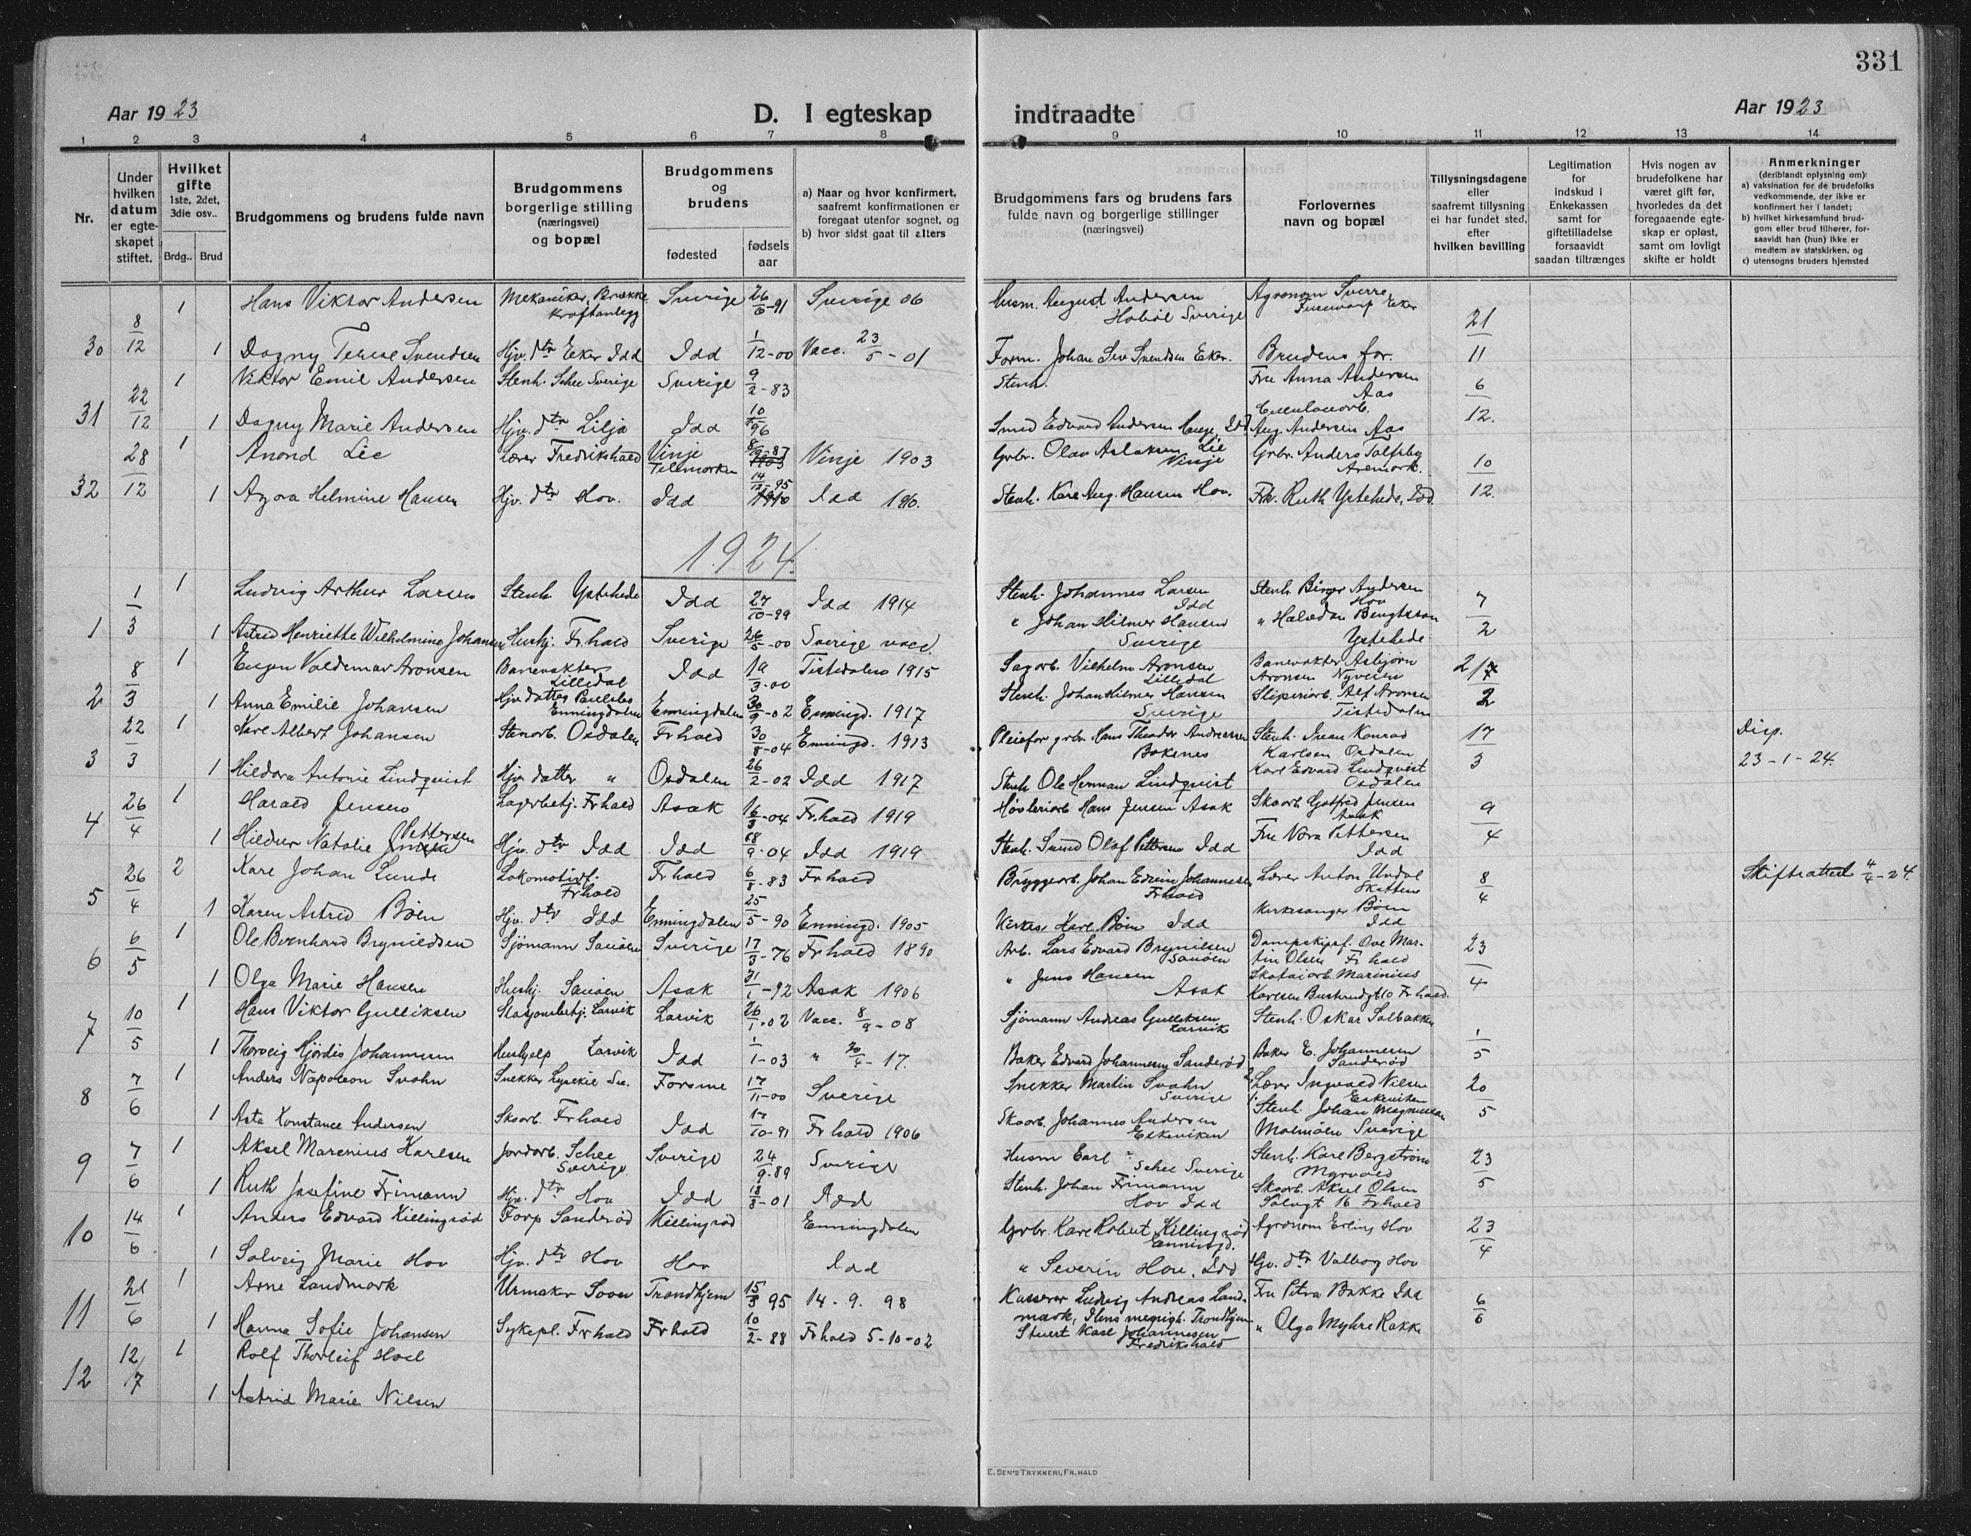 331
Aar 1923
D. I egteskap
indtraadte
Aar 1923
1 2 3 4 5 6 7 8 9 10 11 12 13 14
Nr.
Under hvilken datum er egteskapet stiftet.
Hvilket gifte 1ste, 2det, 3die osv..
Brdg.. Brud
Brudgommens og brudens fulde navn
Brudgommens borgerlige stilling (næringsvei) og bopæl
Brudgommens og brudens
fødested
fødsels aar
a) Naar og hvor konfirmert, saafremt konfirmationen er foregaat utenfor sognet, og
b) hvor sidst gaat til alters
Brudgommens fars og brudens fars fulde navn og borgerlige stillinger (næringsvei)
Forlovernes navn og bopæl
Tillysningsdagene eller saafremt tillysning ei har fundet sted, efter hvilken bevilling
Legitimation for indskud i Enkekassen samt for giftetilladelse forsaavidt saadan tiltrænges
Hvis nogen av brudefolkene har været gift før, hvorledes da det foregaaende egteskap er opløst, samt om lovligt skifte er holdt
Anmerkninger (deriblandt oplysning om):
a) vaksination for de brudefolks vedkommende, der ikke er konfirmert her i landet;
b) hvilket kirkesamfund brudgom eller brud tilhører, forsaavidt han (hun) ikke er medlem av statskirken, og
c) utensogns bruders hjemsted
30 8/12 1 Hans Viktor Andersen Mekaniker, Brække kraftanlegg Sverige 26/6-91 Sverige 06 Husm. August Andersen Sverige Agronom Sverre Eker 21/11
1 Dagny Terese Svendsen Hjv. dtr Eker Idd Idd 1/12-00 Vacc. 23/5-01 Form. Johan Sev Svendsen Eker. Brudens far.
31 22/12 1 Viktor Emil Andersen Stenh. Schee Sverige Sverige 9/2-83 Stenh. Fru Anna Andersen Aas 6/12.
1 Dagny Marie Andersen Hjv. dtr Lilja Idd 10/10 96 Smed Edvard Andersen Idd Aug. Andersen Aas
32 28/12 1 Anond Lie Lærer Fredrikshald Vinje Telemarken 8/9-87 1903 Vinje 1903 Grbr. Olav Aslaksen Lie Vinje Grbr. Anders Tolfsby Aremark. 10/12.
1 Agora Helmine Hansen Hjv. dtr Hov. Idd 14/12-95 1910 Idd 1910. Stenh. Karl Aug. Hansen Hov. Frk. Ruth Ystehede, Idd
1924.
1 1/3 1 Ludvig Arthur Larsen Stenh Ystehede Idd 27/10-99 Idd 1914 Stenh. Johannes Larsen Idd Stenh Birger Andersen Hov 7/2
1 Astrid Henriette Wilhelmine Johansen Hushj. Fr.hald Sverige 26/5-00 Sverige vacc. " Johan Hilmer Hansen Sverige " Halvdan Bengtsson Ystehede
2 8/3 1 Eugen Valdemar Aronsen Banevakter Lilledal Idd 19/3-00 Tistedalen 1915 Sagarb. Vilhelm Aronsen Lilledal Banevakter Asbjørn Aronsen Nyveien 217/2
1 Anna Emilie Johansen Hjv datter Enningdalen Enningdalen 30/9-02 Enningd. 1917 Stenh. Johan Hilmer Hansen Sverige Sliperiarb. Alf Aronsen Tistedalen
3 22/3 1 Karl Albert Johansen Stenarb. Osdalen Fr hald 30/8-04 Enningd. 1913 Pleiefar grbr. Hans Theodor Andreassen Bakenes Stenh. Ivan Konrad Karlsen Osdalen 17/3 Disp. 23-1-24.
1 Hildora Antonie Lindqvist Hjv datter " Osdalen 26/2-02 Idd 1917 Stenh Ole Herman Lindqvist Karl Edvard Lindqvist Osdalen
4 26/4 1 Harald Jensen Lagerbetj. Fr hald Asak 16/3-04 Fr.hald 1919 Høvleriarb Hans Jensen Asak Skoarb Gotfred Jensen Asak 9/4
1 Hildur Natalie Pettersen Hjv. dtr Idd Idd 18/9-04 Idd 1919 Stenh. Svend Olaf Pettersen Idd Fru Nora Pettersen Idd
5 26/4 2 Karl Johan Lunde Lokomotivf. Fr hald Fr hald 6/8-83 Fr hald Bryggearb. Johan Edvin Johannesen Fr hald Lærer Anton Undal 8/4 Skifteattest 4/4-24.
1 Karen Astrid Bøen Hjv. dtr Idd Enningdalen 25/5-90 Enningd. 1905 Kirkes Karl Bøen Idd Kirkesanger Bøen Idd
6 6/5 1 Ole Bernhard Brynildsen Sjømann Sauøen Sverige 17/3-76 Fr hald 1890 Arb. Lars Edvard Brynilsen Sauøen Dampskipsf. Ove Martin Olsen Fr hald 23/4
1 Olga Marie Hansen Hushj. Sauøen Asak 31/1-92 Asak 1906 " Jens Hansen Asak Skotøiarb Marinius Karlsen Buskrudgt 10 Fr hald.
7 10/5 1 Hans Viktor Gulliksen Stasjonsbetj. Larvik Larvik 26/1-02 Vacc. 8/9-08 Sjømann Andreas Gulliksen Larvik Stenh. Oskar Solbakken 1/5
1 Thorveig Hjørdis Johannesen Hushjelp Larvik Idd 1/1-03 " 20/4-17. Baker Edvard Johannesen Sanderød Baker E. Johannesen Sanderød
8 7/6 1 Anders Napoleon Svahn Snekker Lysekil Sv. Forsme 17/11-00 Sverige Snekker Martin Svahn Sverige Lærer Ingvald Nilsen Eskeviken 20/5
1 Asta Konstance Andersen Skoarb. Fr hald Idd 17/10-91 Fr hald 1906 Skoarb. Johannes Andersen Eskeviken Stenh. Johan Magnussen Malmöen Sverige
9 7/6 1 Aksel Marenius Karlsen Jordarb. Schee Sverige Sverige 24/9-89 Sverige Husm Carl " Schee Sverige Stenh. Karl Bergström Myrvold 23/5
1 Ruth Josefine Frimann Hjv. dtr Hov Idd 18/8-01 Idd Stenh. Johan Frimann Hov Idd Skoarb. Aksel Olsen Solvgt 16 Fr hald
10 14/6 1 Anders Edvard Killingrød Forp Sanderød Killingrød Enningdalen Grbr. Karl Robert Killingrød Enningd. Agronom Erling Hov 23/4
1 Solveig Marie Hov Hjv. dtr Hov Hov Idd " Severin Hov, Idd Hjv. dtr Valborg Hov
11 21/6 1 Arne Landmark Urmaker Soon Trondhjem 15/3 95 14-9. 98 Kasserer Ludvig Andreas Landmark, Ilens menigh. Trondhjem Fru Petra Bakke Idd 6/6
1 Hanna Sofie Johansen Sykepl. Fr hald Fr hald 10/2-88 Fr hald 5-10-02 Stuert Karl Johannesen Fredrikshald " Olga Myhre Rakke
12 12/7 1 Rolf Thorleif Hoel
1 Astrid Marie Nilsen
E. SEM'S TRYKKERI, FR.HALD